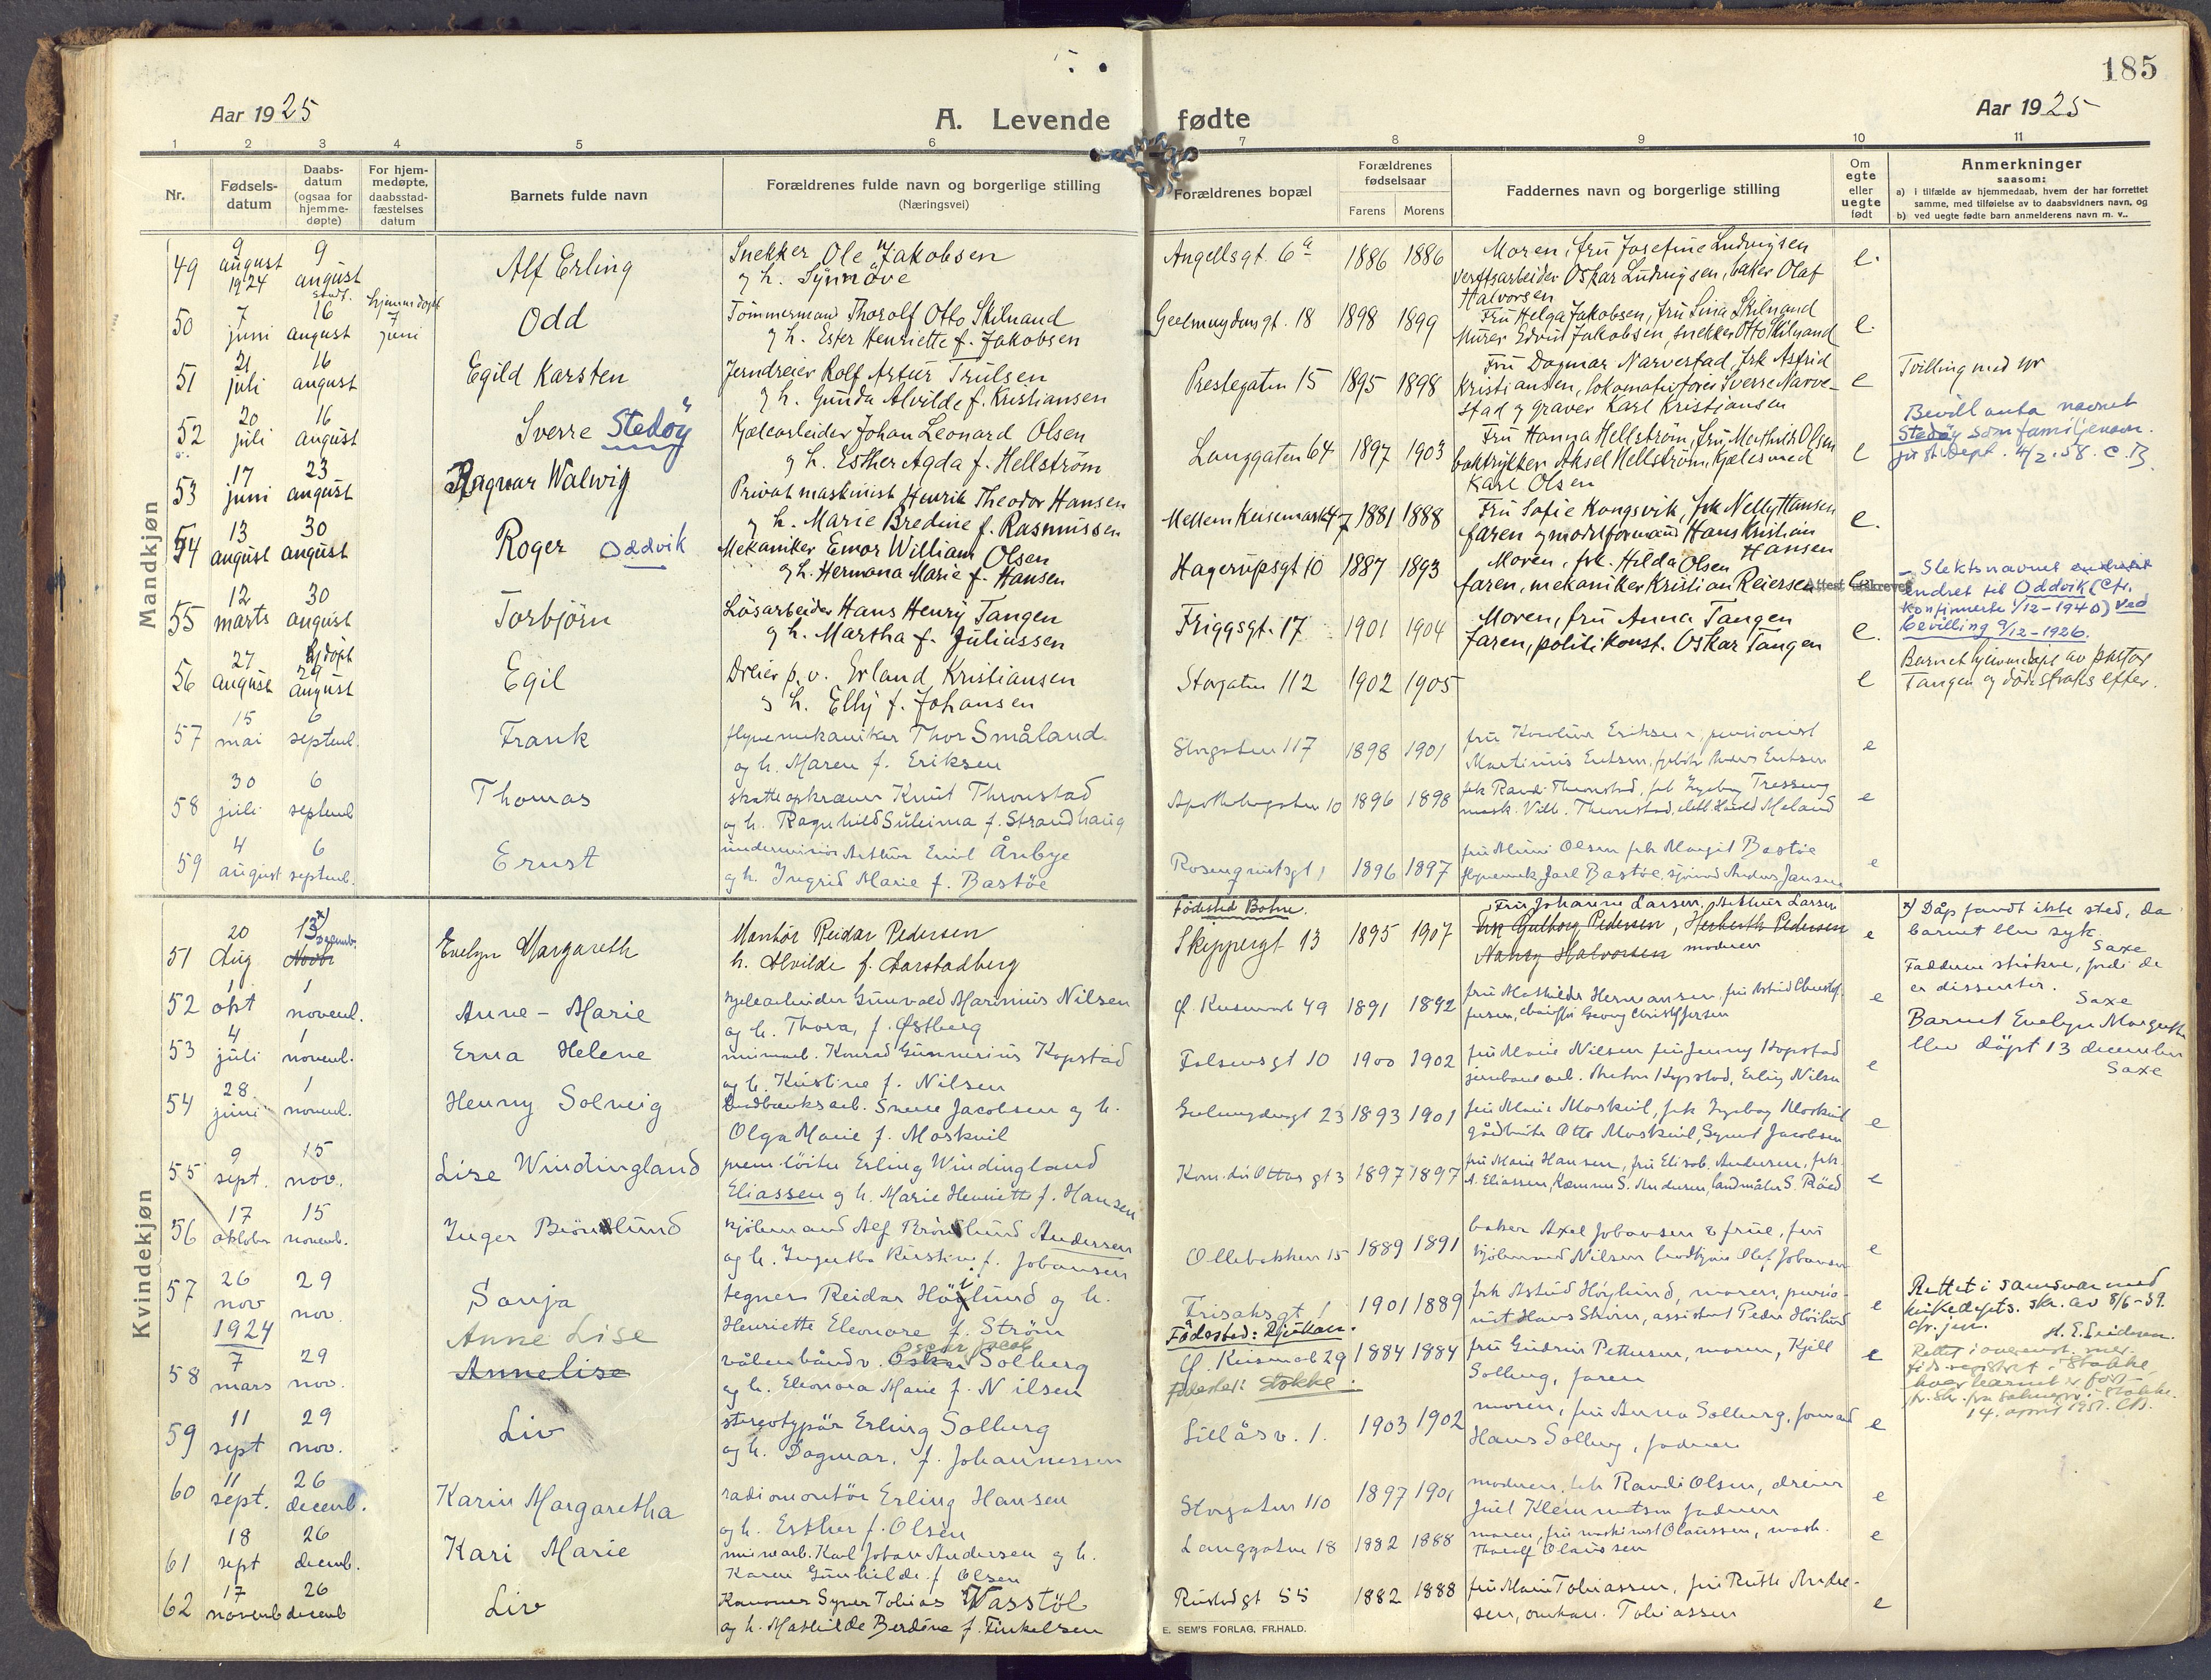 185
Aar 1925
A. Levende fødte
Aar 1925
1 2 3 4 5 6 7 8 9 10 11
Nr.
Fødsels-
datum
Daabs-
datum
(ogsaa for
hjemme-
døpte)
For hjem-
medøpte,
daabsstad-
fæstelses
datum
Barnets fulde navn
Forældrenes fulde navn og borgerlige stilling
(Næringsvei)
Forældrenes bopæl
Forældrenes
fødselsaar
Farens Morens
Faddernes navn og borgerlige stilling
Om
egte
eller
uegte
født
Anmerkninger
saasom:
a) i tilfælde av hjemmedaab, hvem der har forrettet
samme, med tilføielse av to daabsvidners navn, og
b) ved uegte fødte barn anmelderens navn m. v..
Mandkjøn
49 9 august 1924 9 august Alf Erling
Snekker Ole Jakobsen
g h. Synnöve
Angellsgt. 6a 1886 1886
Moren, fru Josefine Ludvigsen
verftsarbeider Oskar Ludvigsen, baker Olaf
Halvorsen
e.
50 7 juni 16 august stadf. hjemmedøpt 7 juni Odd
Tömmermand Thorolf Otto Skilnand
g h. Ester Henriette f. Jakobsen
Geelmuydensgt. 18 1898 1899
Fru Helga Jakobsen, fru Lina Skilnand
Murer Edvin Jakobsen, snekker Otto Skilnand
e.
51 21 juli 16 august Egild Karsten
Jerndreier Rolf Artur Trulsen
g h. Gunda Alvilde f. Kristiansen
Prestegaten 15 1895 1898
Fru Dagmar Narvestad, frk Astrid
Kristiansen, lokomotivfører Sverre Narve-
stad g graver Karl Kristiansen
e
Tvilling med
52 20 juli 16 august Sverre Stedøy
Kjelearbeider Johan Leonard Olsen
g h. Esther Agda f. Hellström
Langgaten 64 1897 1903
Fru Hanna Hellström, fru Mathilde Olsen
boktrykker Aksel Hellström, Kjelesmed
Karl Olsen
e
Bevill anta navnet
Stedøy som familienavn.
just. dept. 4/2. 58. C.B.
53 17 juni 23 august Ragnar Walwig
Privat maskinist Henrik Theodor Hansen
g h. Marie Bredine f. Rasmussen
Mellem Keisemark 47 1881 1888
Fru Sofie Kongsvik, frk Nelly Hansen
faren g modelformand Hans Kristian
Hansen
e.
54 13 august 30 august Roger Oddvik
Mekaniker Emor William Olsen
g h. Hermana Marie f. Hansen
Hagerupsgt 10 1887 1893
Moren, frk. Hilda Olsen
faren, mekaniker Kristian Reiersen
Attest utskrevet
Slektsnavnet
endret til Oddvik (cfr.
konfirmerte 1/12-1940) ved
bevilling 9/12-1926.
55 12 marts 30 august Torbjörn
Lösarbeider Hans Henry Tangen
g h. Martha f. Juliussen
Friggsgt. 17 1901 1904
Moren, fru Anna Tangen
faren, politikonst. Oskar Tangen
e.
56 27 august hj.døpt 29 august Egil
Dreier p. v. Erland Kristiansen
g h. Elly f. Johansen
Storgaten 112 1902 1905
e
Barnet hjemmedøpt av pastor
Tangen og døde straks efter.
57 15 mai 6 septemb. Frank
flyvemekaniker Thor Småland
og h. Maren f. Eriksen
Storgaten 117 1898 1901
fru Karoline Eriksen, pensionist
e
58 30 juli 6 septemb Thomas
skatteopkræver Knut Thronstad
og h. Ragnhild Suleima f. Strandhaug
Apothekergaten 10 1896 1898
e
59 4 august 6 septemb. Ernst
Arthur Emil Årbye
og h. Ingrid Marie f. Bastöe
Rosenqvistsgt 1 1896 1897
fru Mimi Olsen frk Margit Bastöe
flyvemek. Jarl Bastöe, sjömand Anders Jansen
e
Kvindekjøn
51 20 Aug 13 x) Decemb. Novbr Evelyn Margareth
Montør Reidar Pedersen
h. Alvilde f. Aarstadberg
Fødested Botne.
Skippergt 13 1895 1907
Fru Johanne Larsen, Arthur Larsen
Frk Gulborg Pedersen, Herberth Pedersen
Nanny Halvorsen moderen
e
x) Dåp fandt ikke sted, da
barnet blev syk.
Saxe
Faddere strökne, fordi de
er dissenter.
Saxe
Barnet Evelyn Margareth
blev döpt 13 december
Saxe
52 1 okt 1 novemb. Anne-Marie
kjelearbeider Gunvald Marinius Nilsen
og h. Thora, f. Østberg
Ø. Keisemark 49 1891 1892
fru Mathilde Hermansen, fru Astrid Christof-
fersen, chauffør Georg Christoffersen
e
53 4 juli 1 novemb. Erna Helene
minearb. Konrad Gunnerius Kopstad
og h. Kristine f. Nilsen
Falsensgt 10 1900 1902
fru Marie Nilsen fru Jenny Kopstad
jernbanearb. Anton Kopstad, Erling Nilsen
e
54 28 juni 1 novemb. Henny Solveig
Sverre Jacobsen og h.
Olga Marie f. Moskvil
Geelmuydensgt 23 1893 1901
fru Marie Moskvil, frk Ingeborg Moskvil
gårdbruker Otto Moskvil, Syvert Jacobsen
e
55 9 sept. 15 nov. Lise Windingland
prem.löitn Erling Windingland
Eliassen g h. Marie Henriette f. Hansen
Kom.dör Ottos gt 3 1897 1897
fru Marie Hansen, fru Elisab. Andersen, frk.
A. Eliassen, Kæmner S. Andersen, landmåler S. Röed
e
56 17 oktober 15 novemb. Inger Brönlund
Alf Brönlund Andersen
og h. Ingertha Kirstine f. Johansen
Ollebakken 15 1889 1891
baker Axel Johansen & frue, fru
e
57 26 nov 1924 29 nov Sonja
tegner Reidar Höilund og h.
Henriette Eleonore f. Ström
Frisaksgt 1
Fødested: Rjukan.
1901 1889
frk Astrid Höylund, moren, pensio-
nist Hans Ström, assistent Peder Höilund
e
Rettet i samsvar med
kirkedepts. skr. av 8/6-39.
cfr. jnr.
58 7 mars 29 nov. Anne Lise Annelise
våbenbåndv. Oscar Jacob Oskar Solberg
og h. Eleonora Marie f. Nilsen
Ø. Keisemark 29 1884 1884
Fødested: Stokke.
fru Gudrun Pettersen, moren, Kjell
Solberg, faren
e
Rettet i overenst. med
föds.registret i Stokke
hvor barnet er født
14. april 1951.
59 11 sept 29 nov. Liv
stereotypör Erling Solberg
og h. Dagmar, f. Johannessen
Lillåsv. 1. 1903 1902
moren, fru Anna Solberg, formand
Hans Solberg, faderen
e
60 11 sept. 26 decemb. Karin Margaretha
radiomontör Erling Hansen
og h. Esther f. Olsen
Storgaten 110 1897 1901
moderen, frk Randi Olsen, dreier
Juel Klemmetsen faderen
e
61 18 sept 26 decemb. Kari Marie
minearb. Karl Johan Andersen og h.
Karen Gunhilde f Olsen
Langgaten 18 1882 1888
moren, fru maskinist Olaussen, mask.
Thoralf Olaussen
e
62 17 novemb 26 decemb Liv
Kanoner Syver Tobias Wasstöl
og h. Mathilde Berdine f. Finkelsen
Rustadgt 55 1882 1888
fru Marie Tobiassen, fru Ruth Ander-
sen, Tobiassen
e
E. SEM'S FORLAG, FR.HALD.